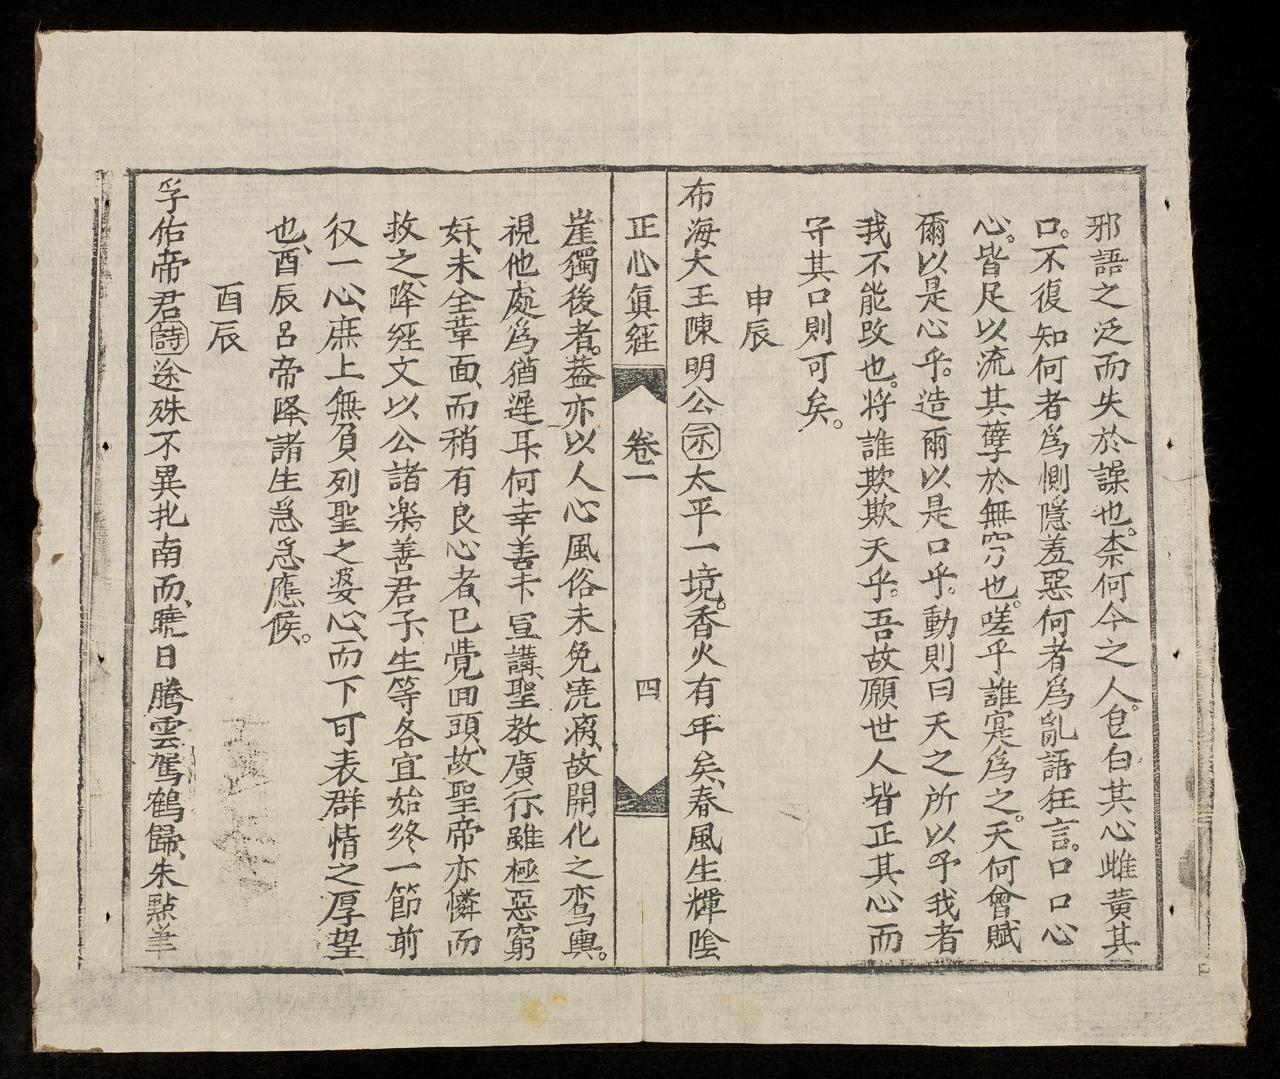 邪語之泛而失於譟也。柰何今之人。皀白其心雌黃其
口。不復知何者爲惻隱羞惡何者爲亂語狂言。口口心
心。皆足以流其孽於無窮也。嗟乎誰寔爲之。天何曾賦
爾以是心乎。造爾以是口乎。動則曰天之所以予我者
我不能改也。將誰欺欺天乎。吾故願世人皆正其心而
守其口則可矣。
申辰
布海大王陳明公示太平一境。香火有年矣、春風生輝陰
正心眞經
卷一
四
崖獨後者。蓋亦以人心風俗未免澆漓、故開化之鸞輿。
視他處爲猶遲耳、何幸善卞宣講、聖教廣行、雖極惡窮
奸、未全革面、而稍有良心者、已覺囬頭、故聖帝亦憐而
救之、降經文以公諸樂善君子、生等各宜始終一節前
仅一心、庶上無負列聖之婆心、而下可表群情之厚望
也、酉辰呂帝降諸生爲爲應候。
酉辰
孚佑帝君詩途殊不異扎南而、曉日騰雲駕鶴歸、朱點筆